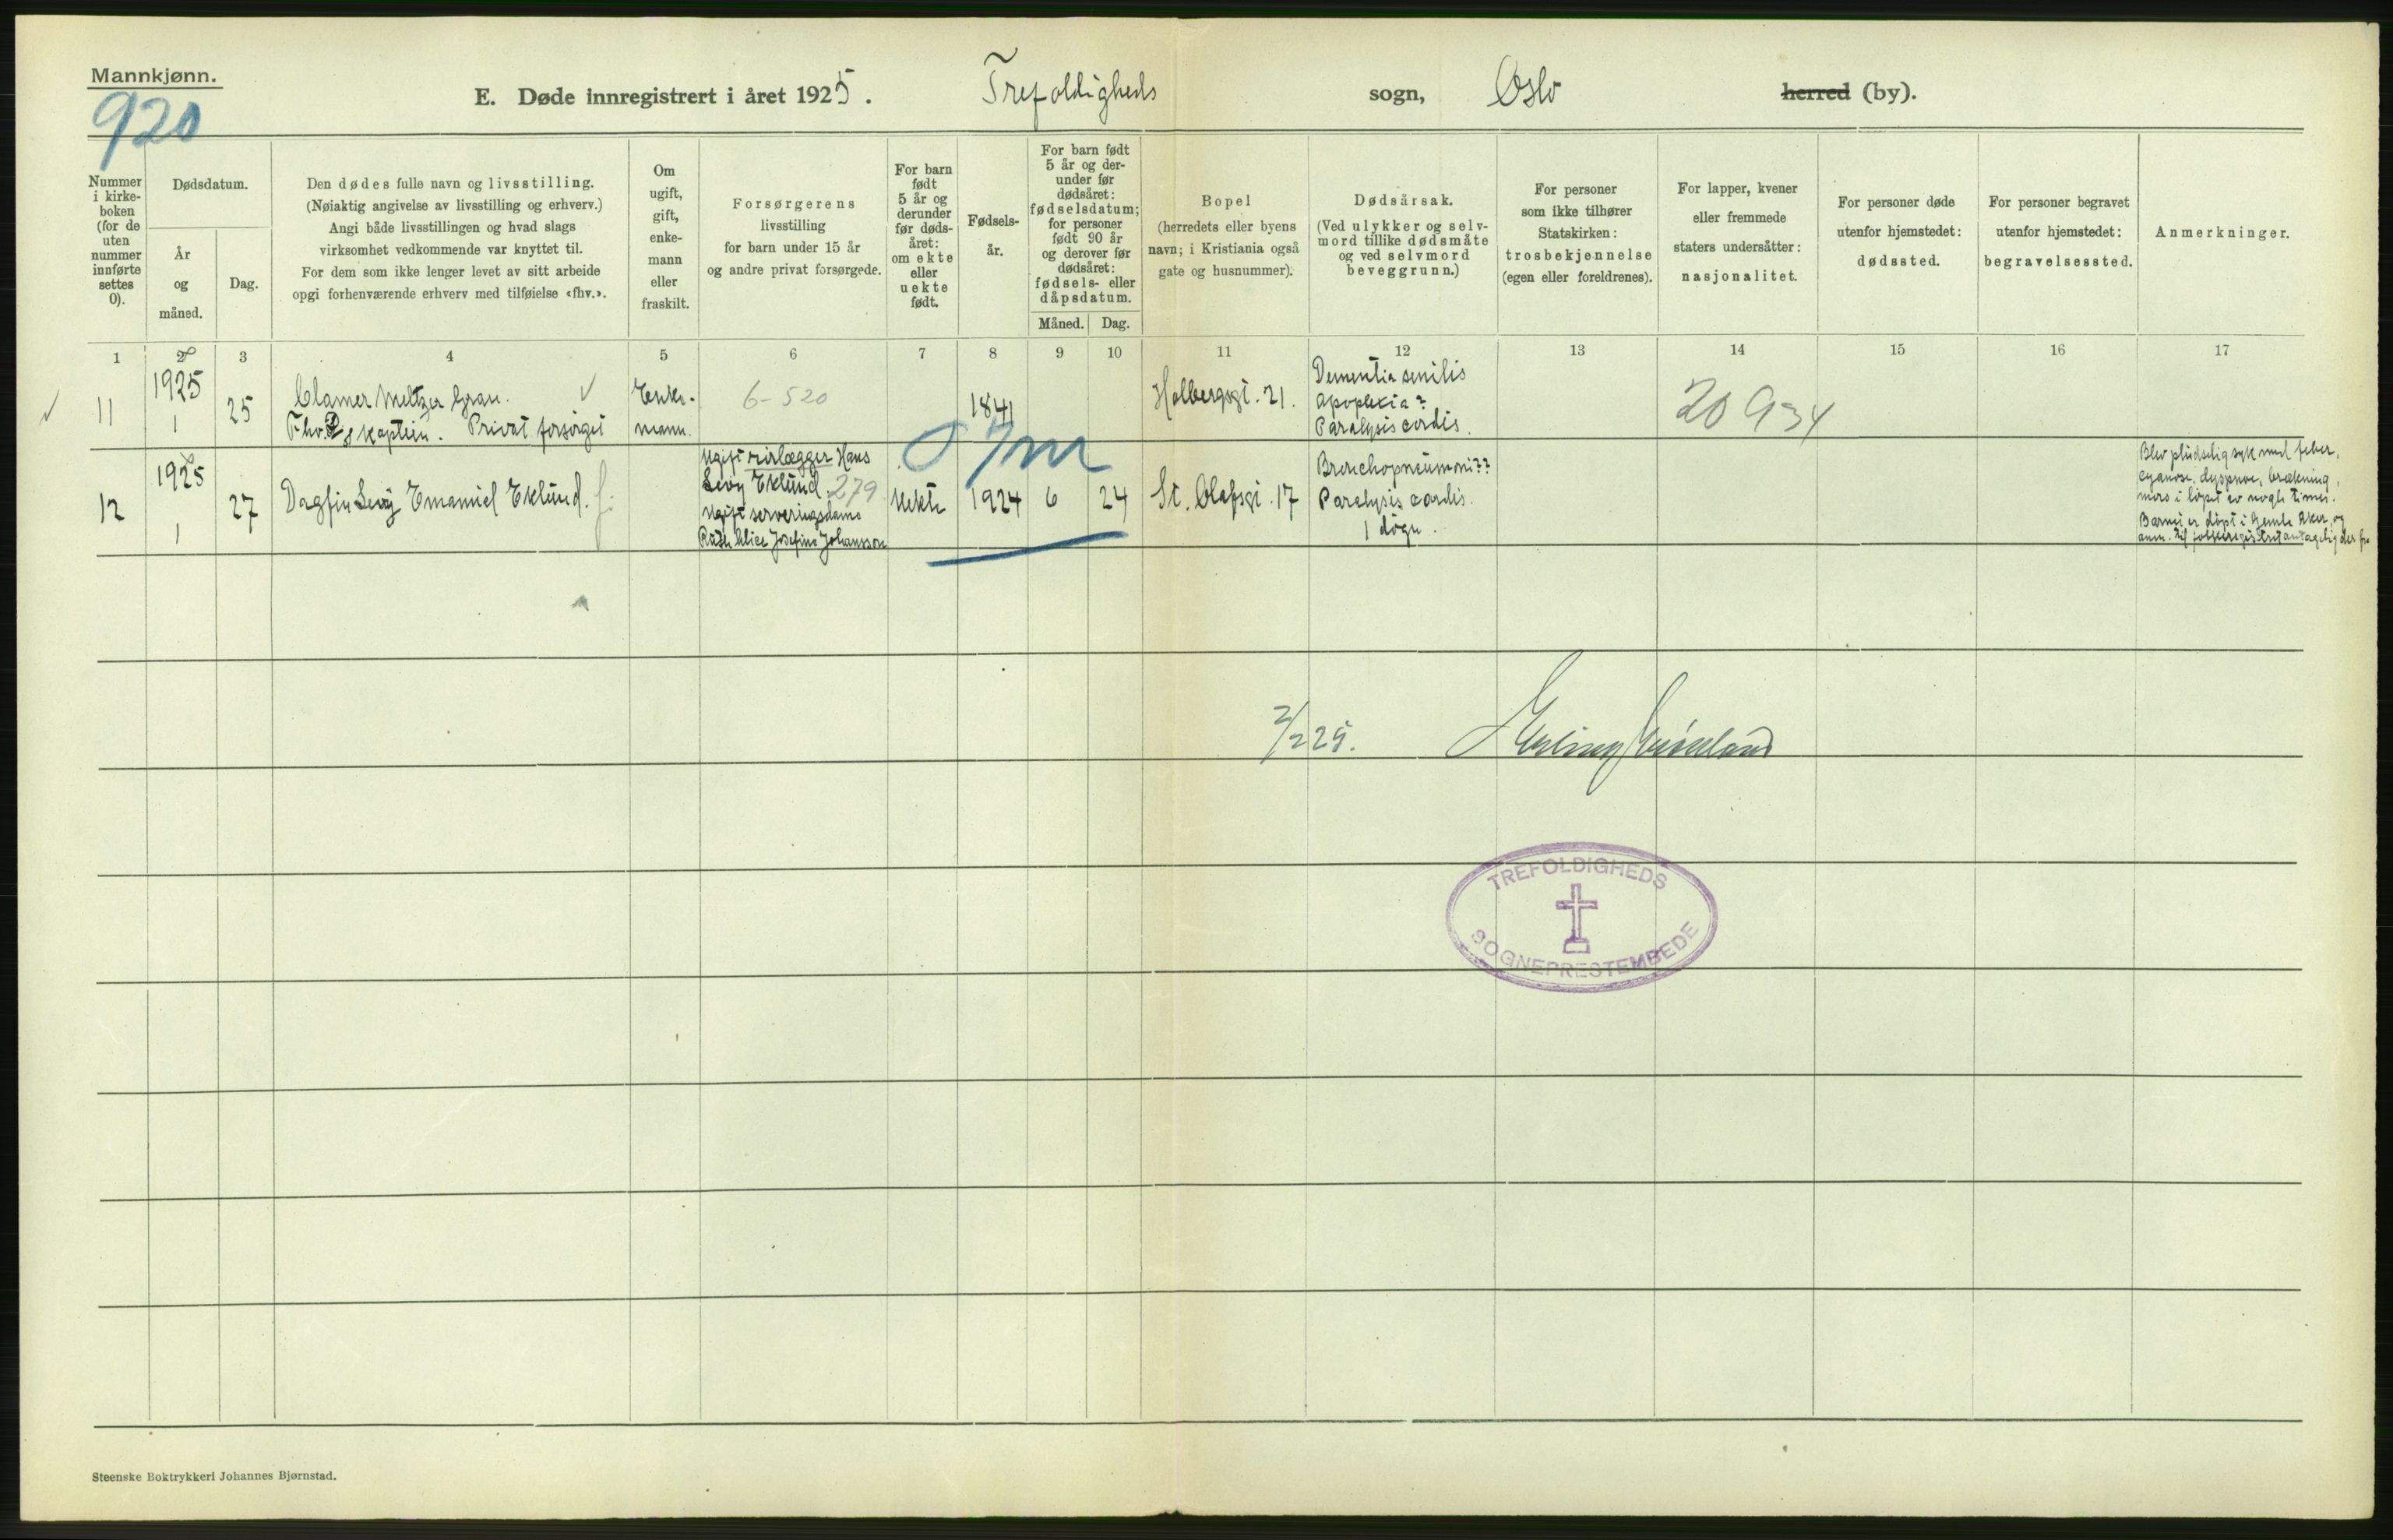 Mannkjønn.
920
E. Døde innregistrert i året 1925. Trefoldigheds sogn, Oslo herred (by).
Nummer i kirke-boken (for de uten nummer innførte settes 0).
Dødsdatum.
År og måned.
Dag.
Den dødes fulle navn og livsstilling.
(Nøiaktig angivelse av livsstilling og erhverv.)
Angi både livsstillingen og hvad slags
virksomhet vedkommende var knyttet til.
For dem som ikke lenger levet av sitt arbeide
opgi forhenværende erhverv med tilføielse «fhv.».
Om ugift, gift, enke-mann eller fraskilt.
Forsørgerens
livsstilling
for barn under 15 år
og andre privat forsørgede.
For barn født 5 år og derunder før døds-året: om ekte eller uekte født.
Fødsels-år.
For barn født 5 år og der-under før dødsåret: fødselsdatum; for personer født 90 år og derover før dødsåret: fødsels- eller dåpsdatum.
Måned. Dag.
Bopel
(herredets eller byens
navn; i Kristiania også
gate og husnummer).
Dødsårsak.
(Ved ulykker og selv-
mord tillike dødsmåte
og ved selvmord
beveggrunn.)
For personer
som ikke tilhører
Statskirken:
trosbekjennelse
(egen eller foreldrenes).
For lapper, kvener
eller fremmede
staters undersåtter:
nasjonalitet.
For personer døde
utenfor hjemstedet:
dødssted.
For personer begravet
utenfor hjemstedet:
begravelsessted.
Anmerkninger.
1 2 3 4 5 6 7 8 9 10 11 12 13 14 15 16 17
11
1925
1
25
Clamer Meltzer Gran.
Fhv. kaptein. Privat forsørget
Enke-
mann.
6-520
1841
Holbergsgt. 21.
Dementia senilis
Apoplexia?
Paralysis cordis.
20934
12
1925
1
27
Dagfin Levy Emanuel Eklund.
Ugift rørlægger Hans
Levy Eklund 279
Ugift serveringsdame
Ruth Alice Josefine Johansson
Uekte
1924
6
24
St. Olafsgt. 17
Bronchopneumoni??
Paralysis cordis.
1 døgn.
Blev pludselig syk med feber,
cyanose, dyspnoe, brækning,
mors i løpet av nogle timer.
Barnet er døpt i Gamle Aker og
2/2 25.
TREFOLDIGHEDS
SOGNEPRESTEMBEDE
Steenske Boktrykkeri Johannes Bjørnstad.